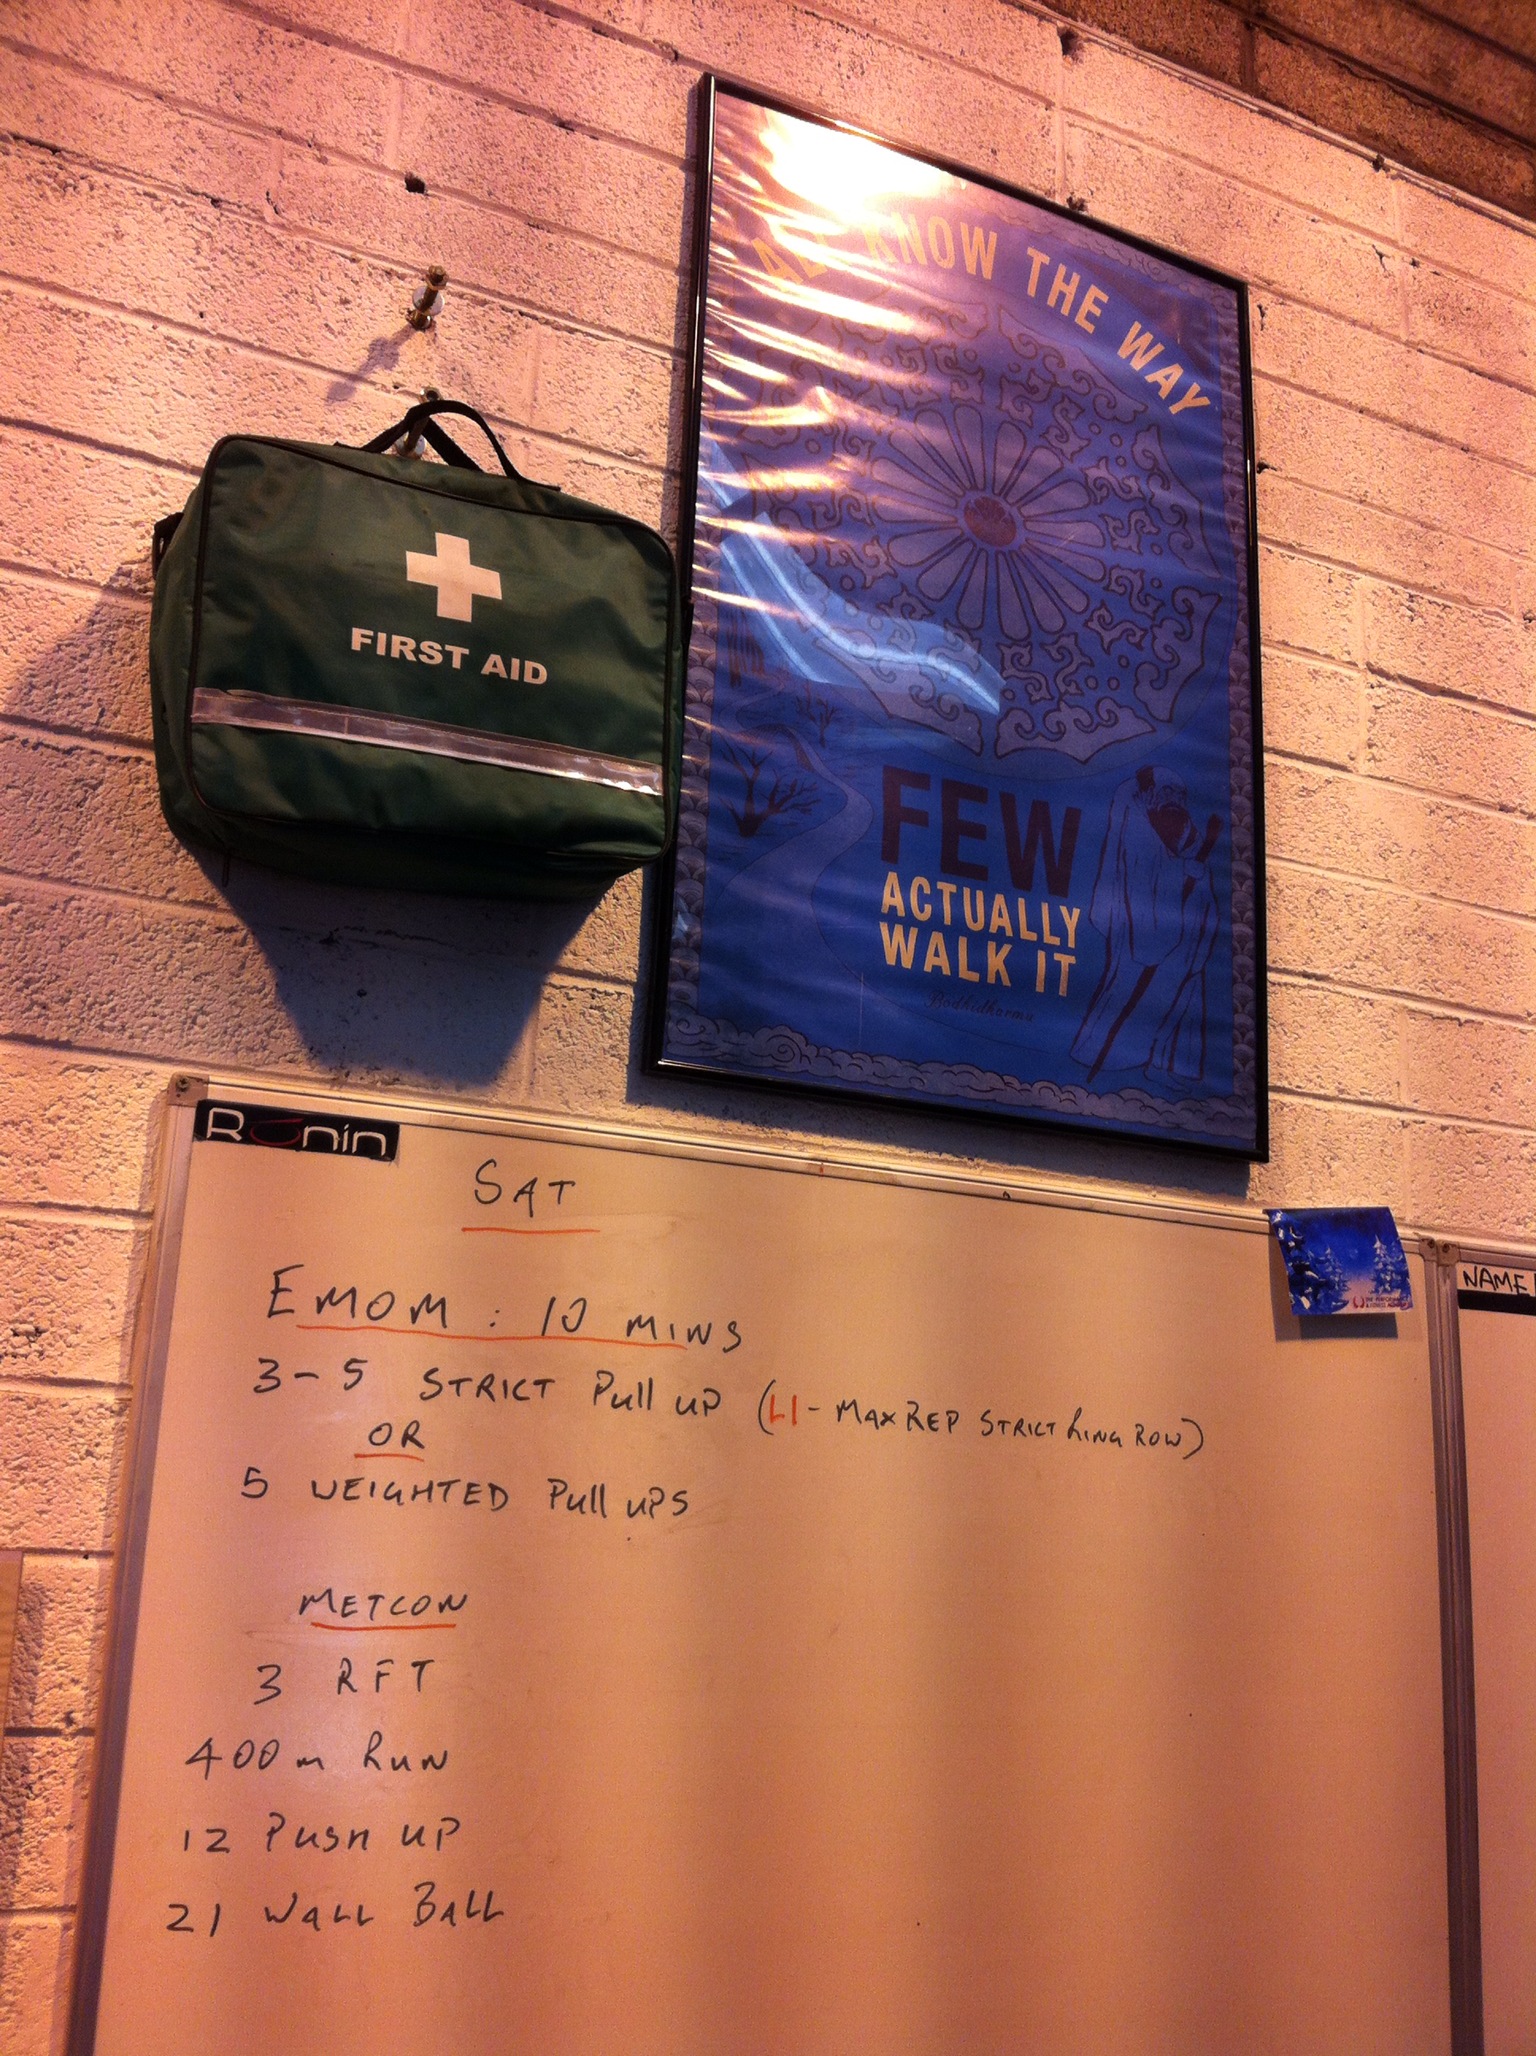 ALL KNOW THE WAY
FEW
ACTUALLY
WALK IT
Bodhidharma
FIRST AID
Ronin
SAT
EMOM : 10 MINS
3-5 STRICT Pull UP (L1- MAX REP STRICT RING ROW)
OR
5 WEIGHTED Pull UPS
METCON
3 RFT
400m RUN
12 PUSH UP
21 WALL BALL
NAME